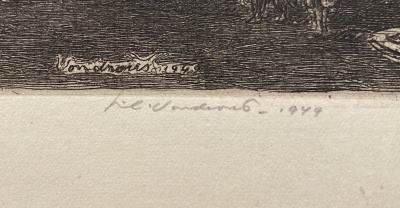 Vondrous 1949
J. C. Vondrous - 1949